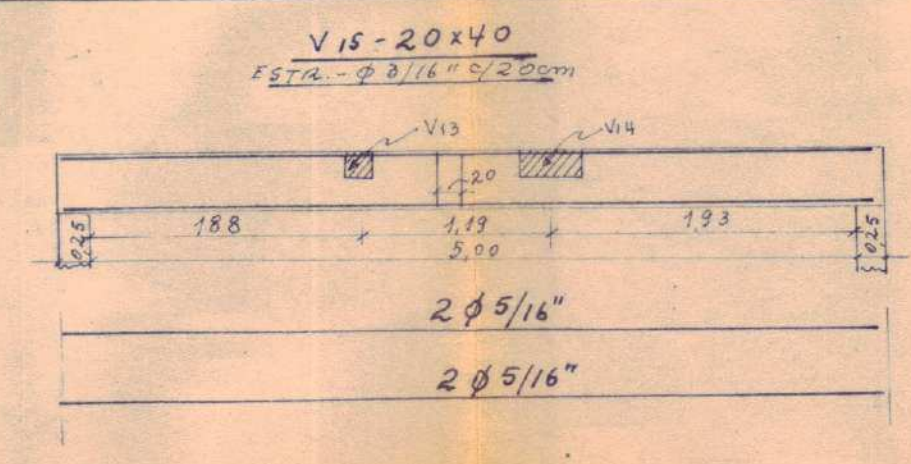 V15 - 20x40
ESTR. - φ 3/16" c/20cm
V13 V14
20
188 1,19 1,93
0,25 5,00 0,25
2 φ 5/16"
2 φ 5/16"